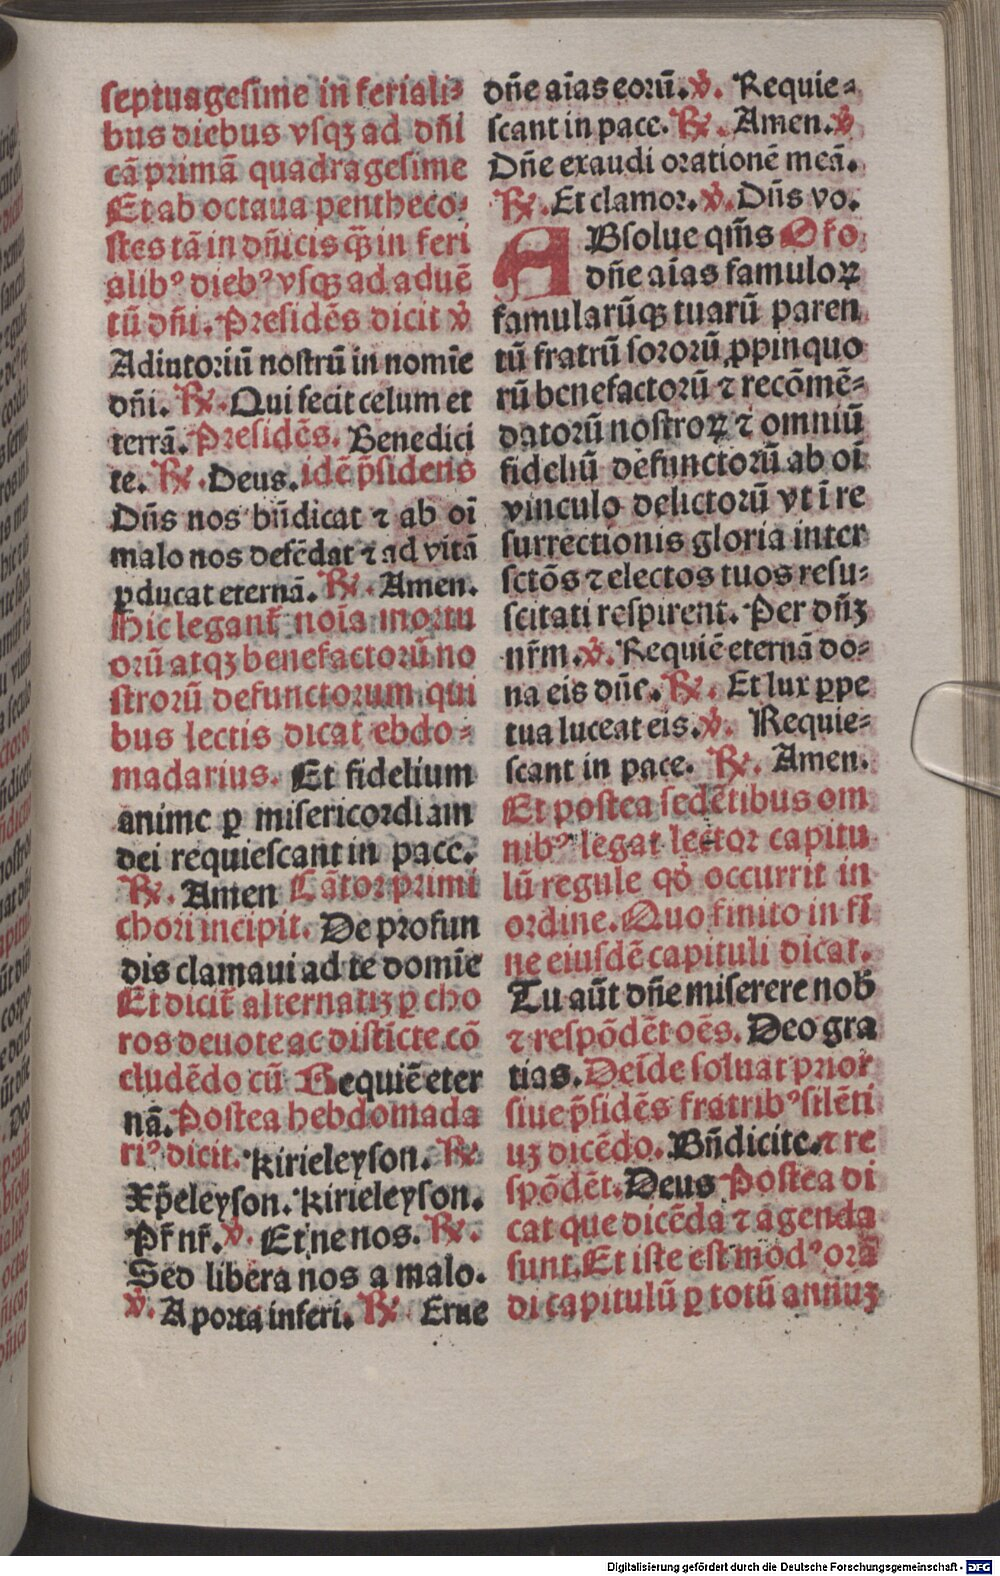 septuagesime in feriali⸗
bus diebus vsqꝫ ad dn̄i
cā primā quadragesime
Et ab octaua pentheco⸗
stes tā in dn̄icis qꝫ̄ in feri
alibꝰ diebꝰ vsqꝫ ad aduē
tū dn̄i. Presidēs dicit ℣
Adiutoriū nostrū in nomīe
dn̄i. ℞. Qui fecit celum et
terrā. Presidēs. Benedici
te. ℞. Deus. idē p̄sidens
Dn̄s nos bn̄dicat ⁊ ab oī
malo nos defēdat ⁊ ad vitā
ꝑducat eternā. ℞. Amen.
Hic legant᷑ noīa mortu
orū atqꝫ benefactorū no
strorū defunctorum qui
bus lectis dicat ebdo⸗
madarius. Et fidelium
anime ꝑ misericordiam
dei requiescant in pace.
℞. Amen Cātor primi
chori incipit. De profun
dis clamaui ad te domīe
Et dicit᷑ alternatiꝫ ꝑ cho
ros deuote ac disticte cō
cludēdo cū Requiē eter
nā. Postea hebdomada
riꝰ dicit. Kirieleyson. ℞
Xp̄eleyson. Kirieleyson.
Pr̄ nr̄. ℣. Et ne nos. ℞.
Sed libera nos a malo.
℣. A porta inferi. ℞. Erue
dn̄e aīas eorū. ℣. Requie⸗
scant in pace. ℞. Amen. ℣
Dn̄e exaudi orationē meā.
℞. Et clamor. ℣. Dn̄s vo.
ABsolue qm̄s Oro
dn̄e aīas famuloꝝ
famularūqꝫ tuarū paren
tū fratrū sororū ꝓpinquo
rū benefactorū ⁊ recōmē⸗
datorū nostroꝝ ⁊ omniū
fideliū defunctorū ab oī
vinculo delictorū vt ī re
surrectionis gloria inter
sctōs ⁊ electos tuos resu⸗
scitati respirent. Per dn̄ꝫ
nr̄m. ℣. Requiē eternā do⸗
na eis dn̄e. ℞. Et lux ꝑpe
tua luceat eis. ℣. Requie⸗
scant in pace. ℞. Amen.
Et postea sedētibus om
nibꝰ legat lector capitu
lū regule qō occurrit in
ordine. Quo finito in fi
ne eiusdē capituli dicat.
Tu aūt dn̄e miserere nob̄
⁊ respōdēt oēs. Deo gra
tias. Deīde soluat prior
siue p̄sidēs fratribꝰ silēti
uꝫ dicēdo. Bn̄dicite. ⁊ re
spōdēt. Deus Postea di
cat que dicēda ⁊ agenda
sunt. Et iste est modꝰ orā
di capitulū ꝑ totū annuꝫ
Digitalisierung gefördert durch die Deutsche Forschungsgemeinschaft - DFG